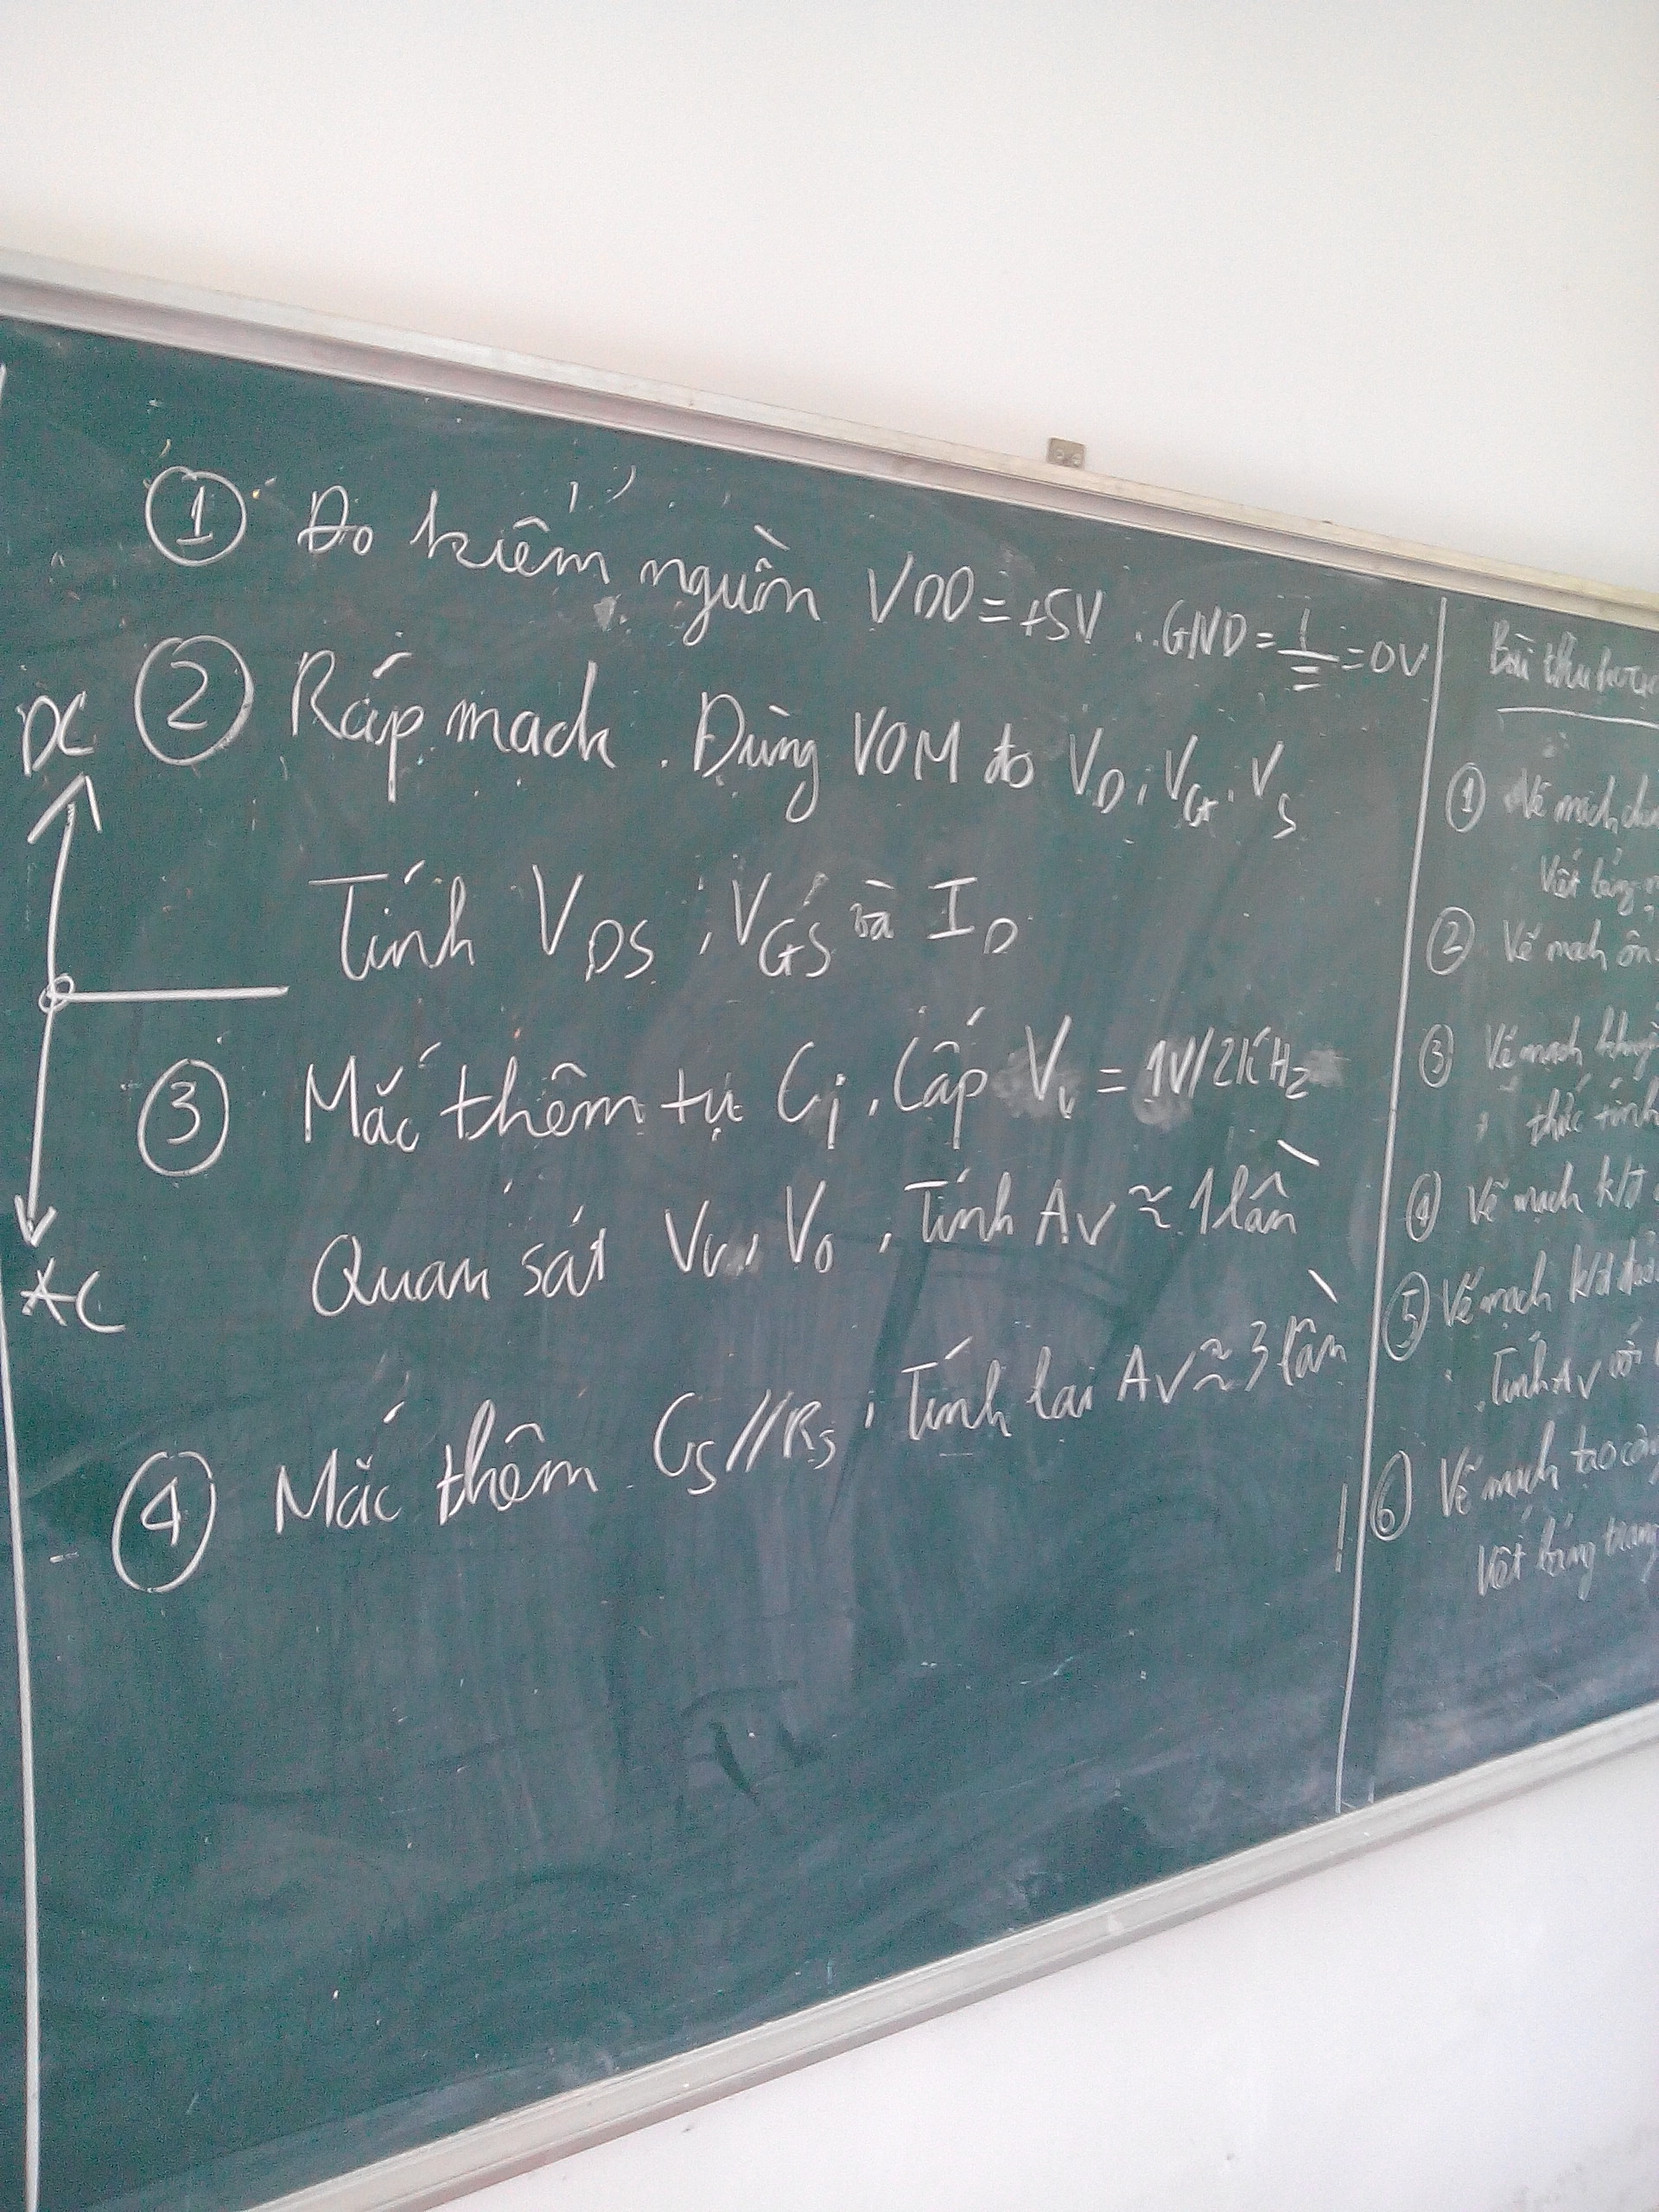 DC
AC
① Đo kiểm nguồn VDD = +5V .. GND = ⏚ = 0V
② Ráp mạch. Dùng VOM đo VD, VG, VS
Tính VDS, VGS và ID
③ Mắc thêm tụ Ci. Cấp Vi = 1V/2KHz
Quan sát Vi, Vo, Tính AV ≈ 1 lần
④ Mắc thêm CS//RS, Tính lại AV ≈ 3 lần
Bài thu
① Vẽ mạch
Viết bảng
② Vẽ mạch ôn
③ Vẽ mạch
thức tính
④ Vẽ mạch k/đ
⑤ Vẽ mạch k/đ
Tính AV với
⑥ Vẽ mạch tạo
Viết bảng